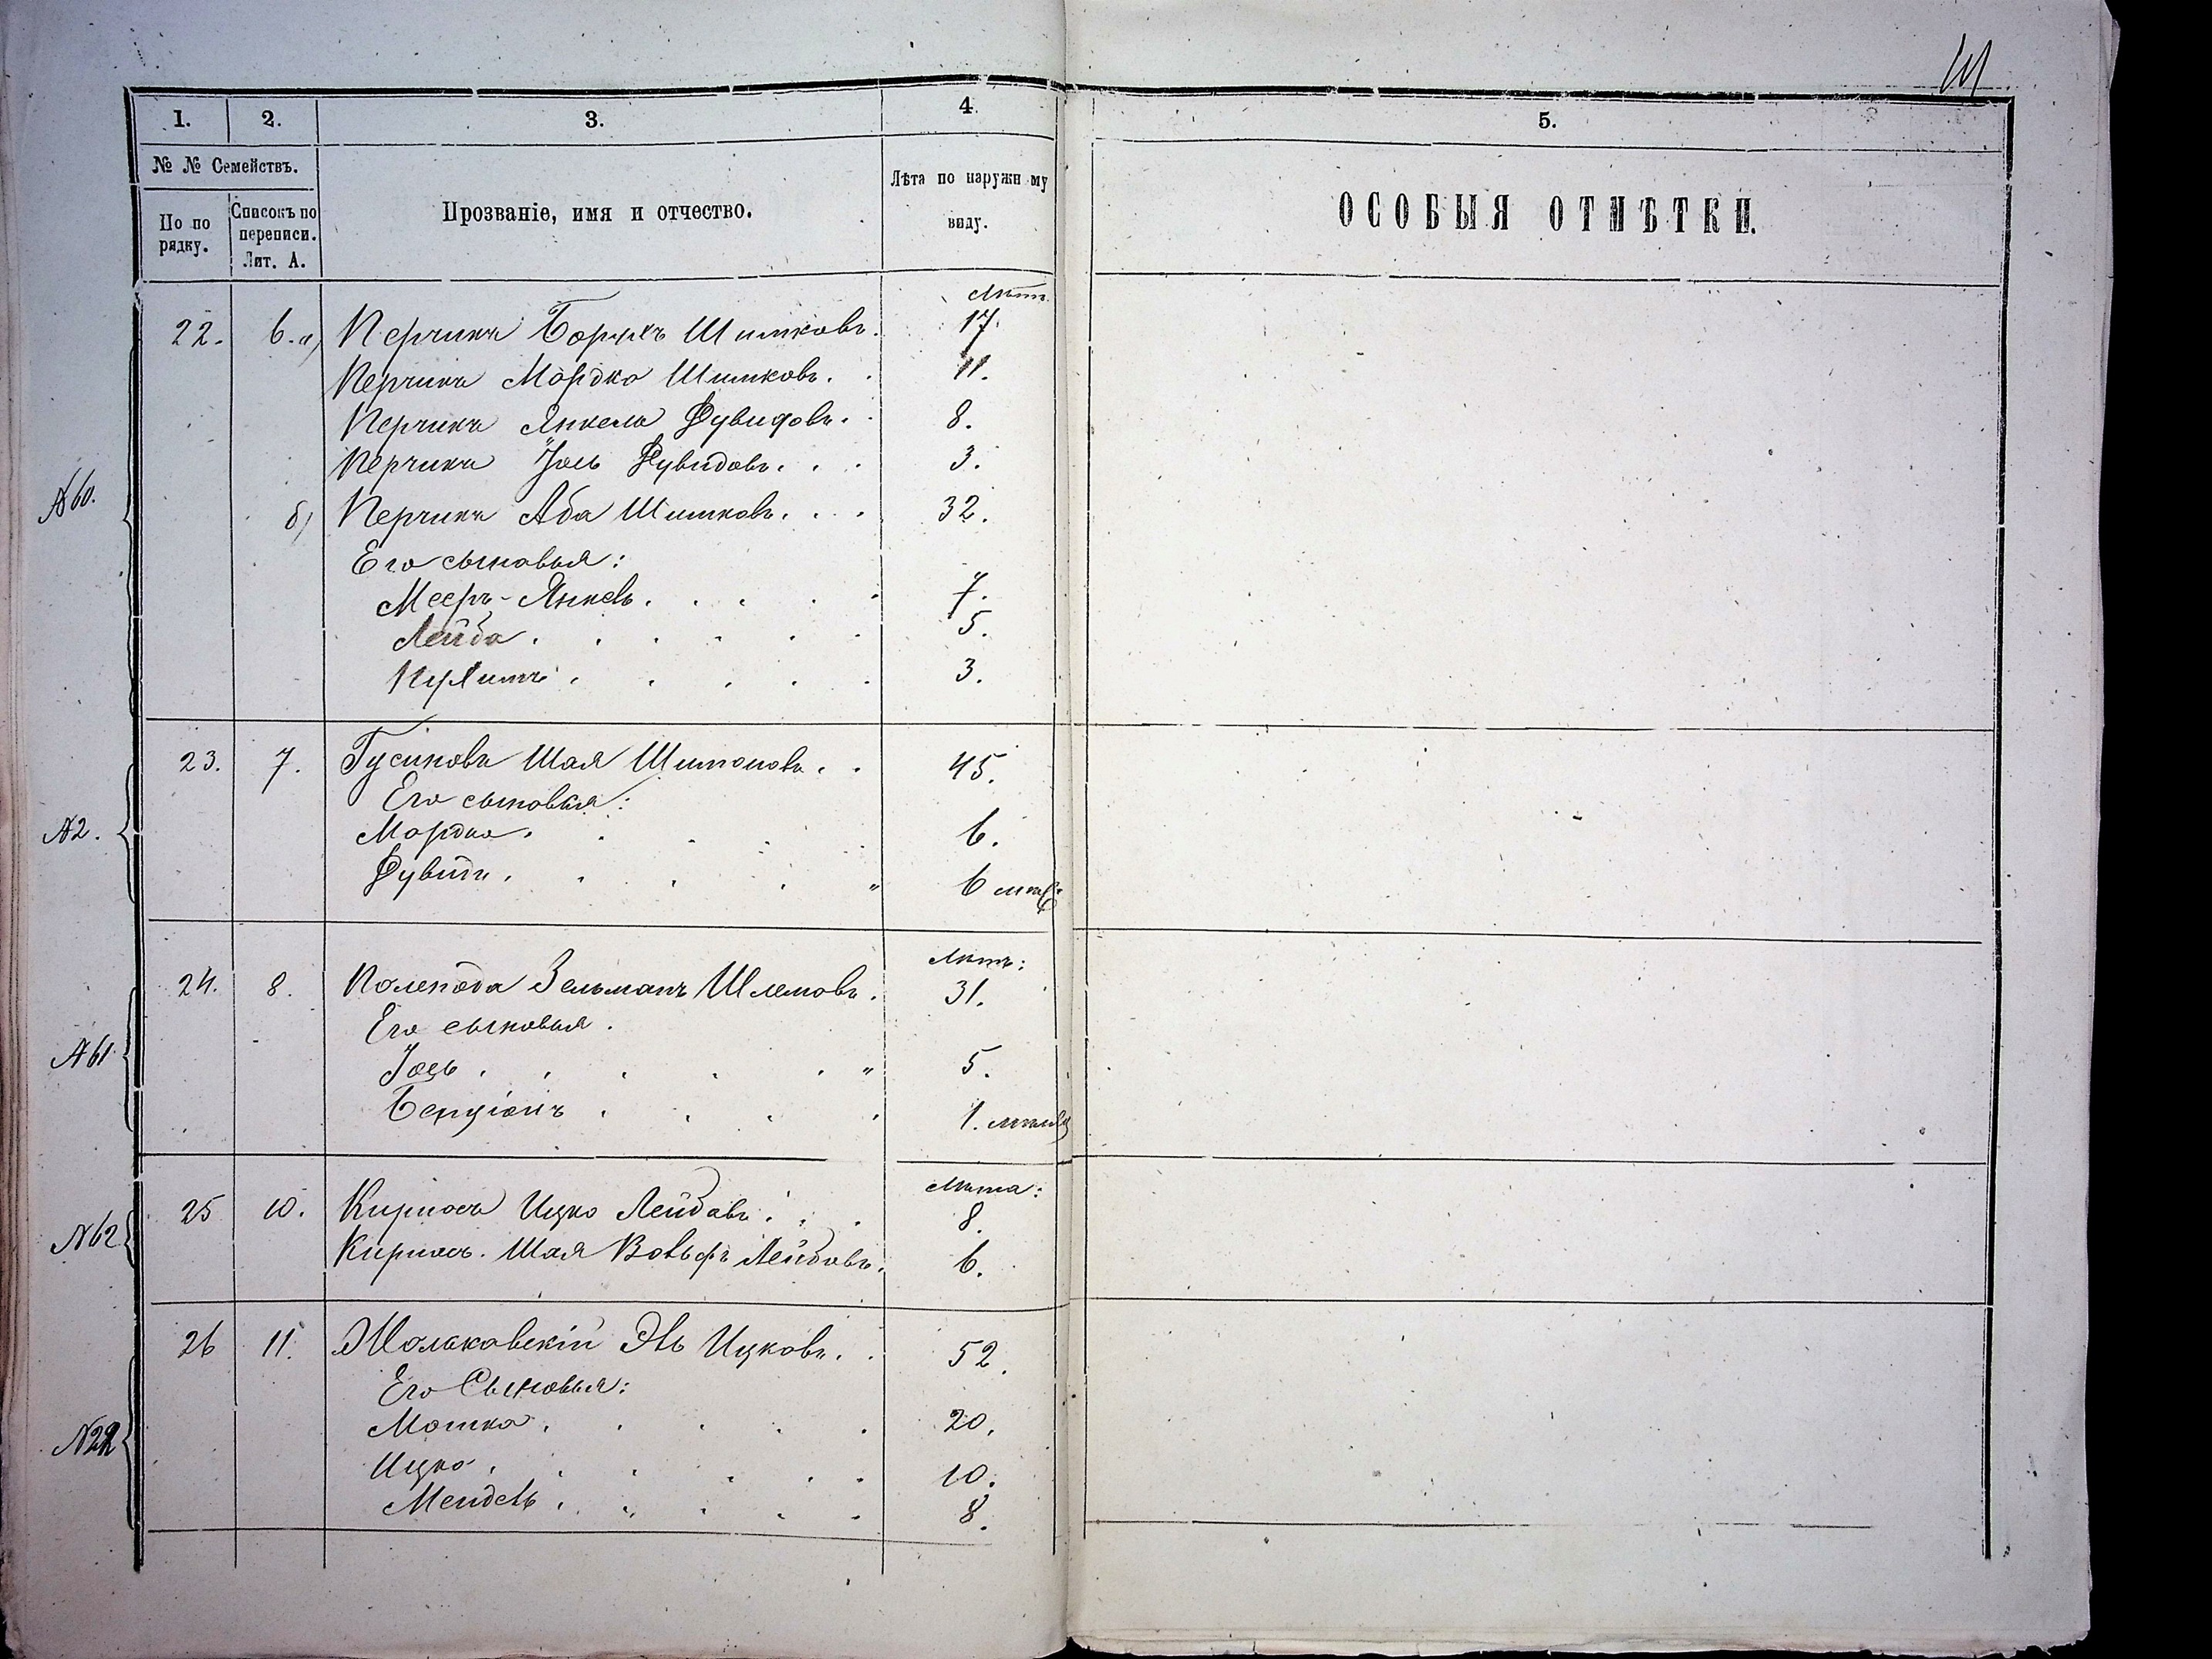 1. 2. 3. 4. 5.
№ № Семействъ.
По по рядку. Списокъ по переписи. Лит. А.
Прозваніе, имя и отчество.
Лѣта по наружн му виду.
ОСОБЫЯ ОТМѢТКИ.
Лѣтъ.
22. 6. а) Перчикъ Борухъ Шимковъ. 17.
Перчикъ Мордко Шимковъ. 11.
Перчикъ Янкель Дувидовъ. 8.
Перчикъ Іось Дувидовъ. 3.
№60.
б) Перчикъ Аба Шимковъ. 32.
Его сыновья:
Мееръ-Янкель. 7.
Лейба. 5.
3.
23. 7. Гусиновъ Шая Шимоновъ. 45.
Его сыновья:
№2. Мордко. 6.
Дувидъ. 6 мѣс.
Лѣтъ:
24. 8. Полепода Зельманъ Шлемовъ. 31.
Его сыновья.
№61 Іось. 5.
Бенціонъ. 1.
Лѣта:
25 10. Ицко Лейбовъ. 8.
№62 Шая Вольфъ Лейбовъ. 6.
26 11. Эль Ицковъ. 52.
Его Сыновья:
Мошко. 20.
№22 Ицко. 10.
Мендель. 8.